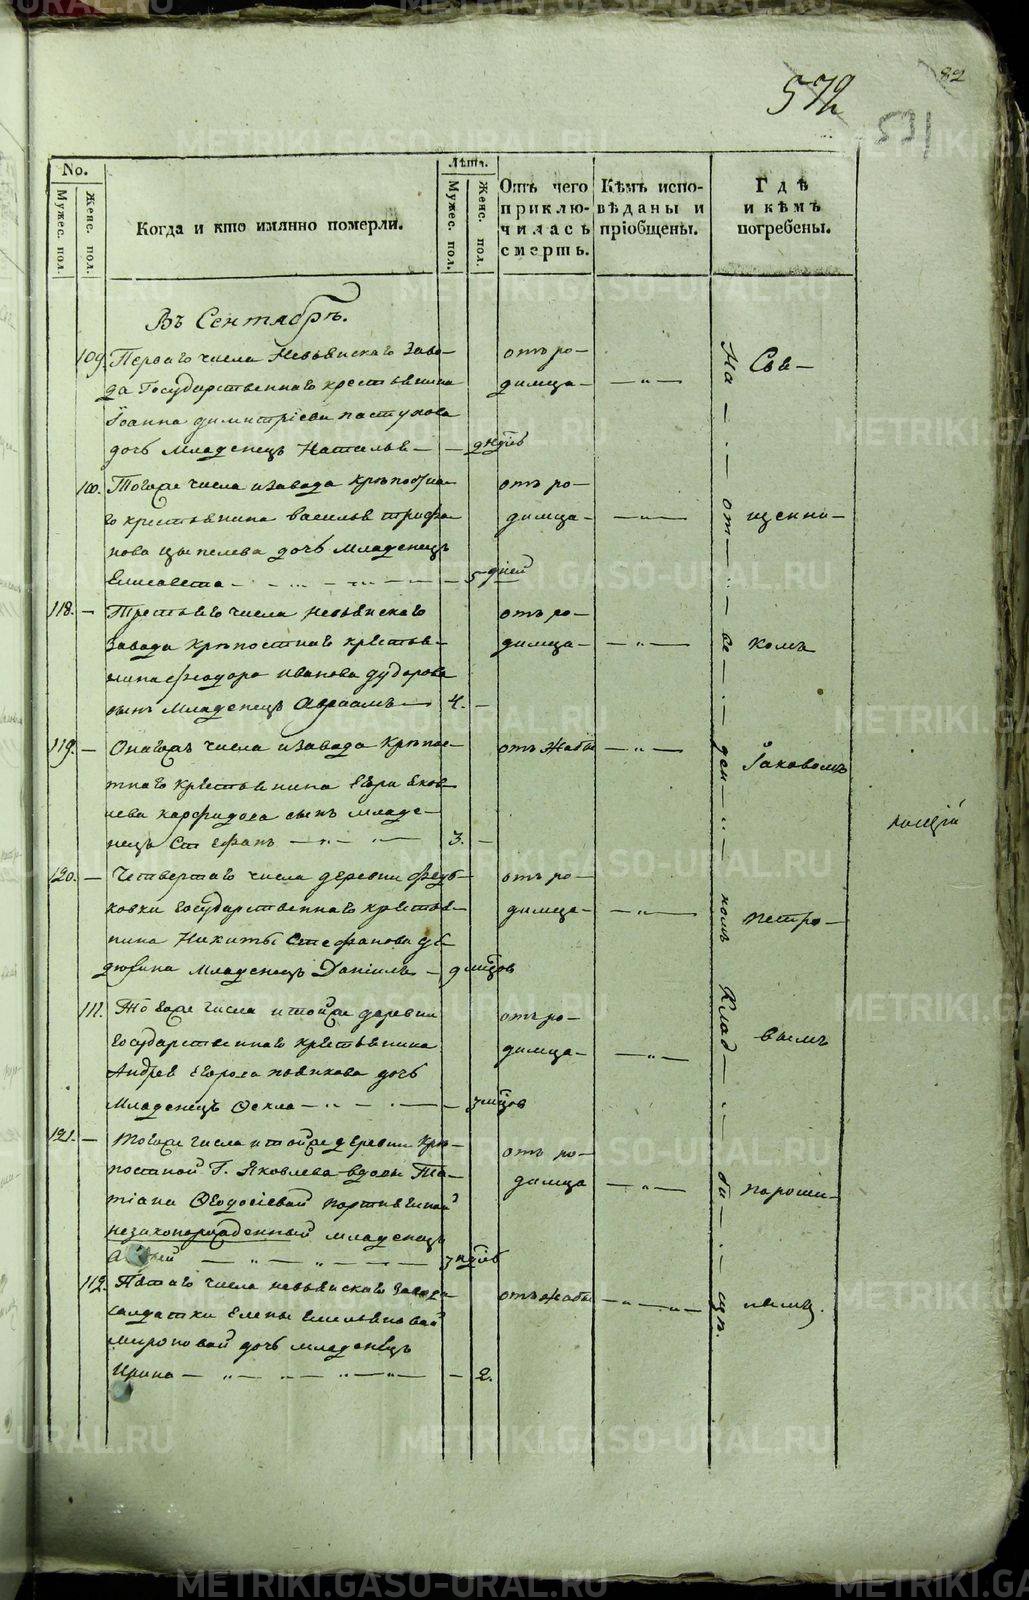 82
572
531
No.
Мужес. пол.
Женс. пол.
Когда и кто имянно померли.
Лѣта.
Мужес. пол.
Женс. пол.
Отъ чего приклю-чилась смерть.
Кѣмъ испо-вѣданы и пріобщены.
Гдѣ и кѣмъ погребены.
Въ Сентябрѣ.
109. Перваго числа Невьянскаго Заво-
да Государственнаго крестьянина
Іоанна Димитріева Пастухова
дочь младенецъ Наталья — 2 недѣль
отъ ро-
димца —
110. Тогоже числа и завода крѣпостна-
го крестьянина Василья Трифа-
нова Цыпелева дочь младенецъ
Елисавета — 5 дней
отъ ро-
димца —
118. — Третьяго числа Невьянскаго
завода крѣпостнаго крестья-
нина Феодора Иванова Дударова
сынъ младенецъ Авраамъ — 4. —
отъ ро-
димца —
119. — Онагожъ числа и завода крѣпос-
тнаго крестьянина Егора Яков-
лева сынъ младе-
нецъ Стефанъ — 3. —
отъ жабы
120. — Четвертаго числа деревни Федь-
ковки государственнаго крестья-
нина Никиты Стефанова
младенецъ Даніилъ — 9 мѣсяцов
отъ ро-
димца —
111. Тогоже числа и тойже деревни
государственнаго крестьянина
Андрея Егорова дочь
младенецъ Фекла — 3 мѣсяцов
отъ ро-
димца —
121. — Тогоже числа и тойже деревни крѣ-
постной Г. Яковлева вдовы Та-
тіаны Феодосіевой
незаконорожденный младенецъ
3 недѣль
отъ ро-
димца
112. Пятаго числа Невьянскаго завода
салдатки Елены Емельяновой
Мироновой дочь младенецъ
Ирина — 2.
отъ жабы
На — от — ве — ден — номъ Клад — би — щѣ.
Свя-
щенни-
комъ
Іаковомъ
Петро-
вымъ
METRIKI.GASO-URAL.RU